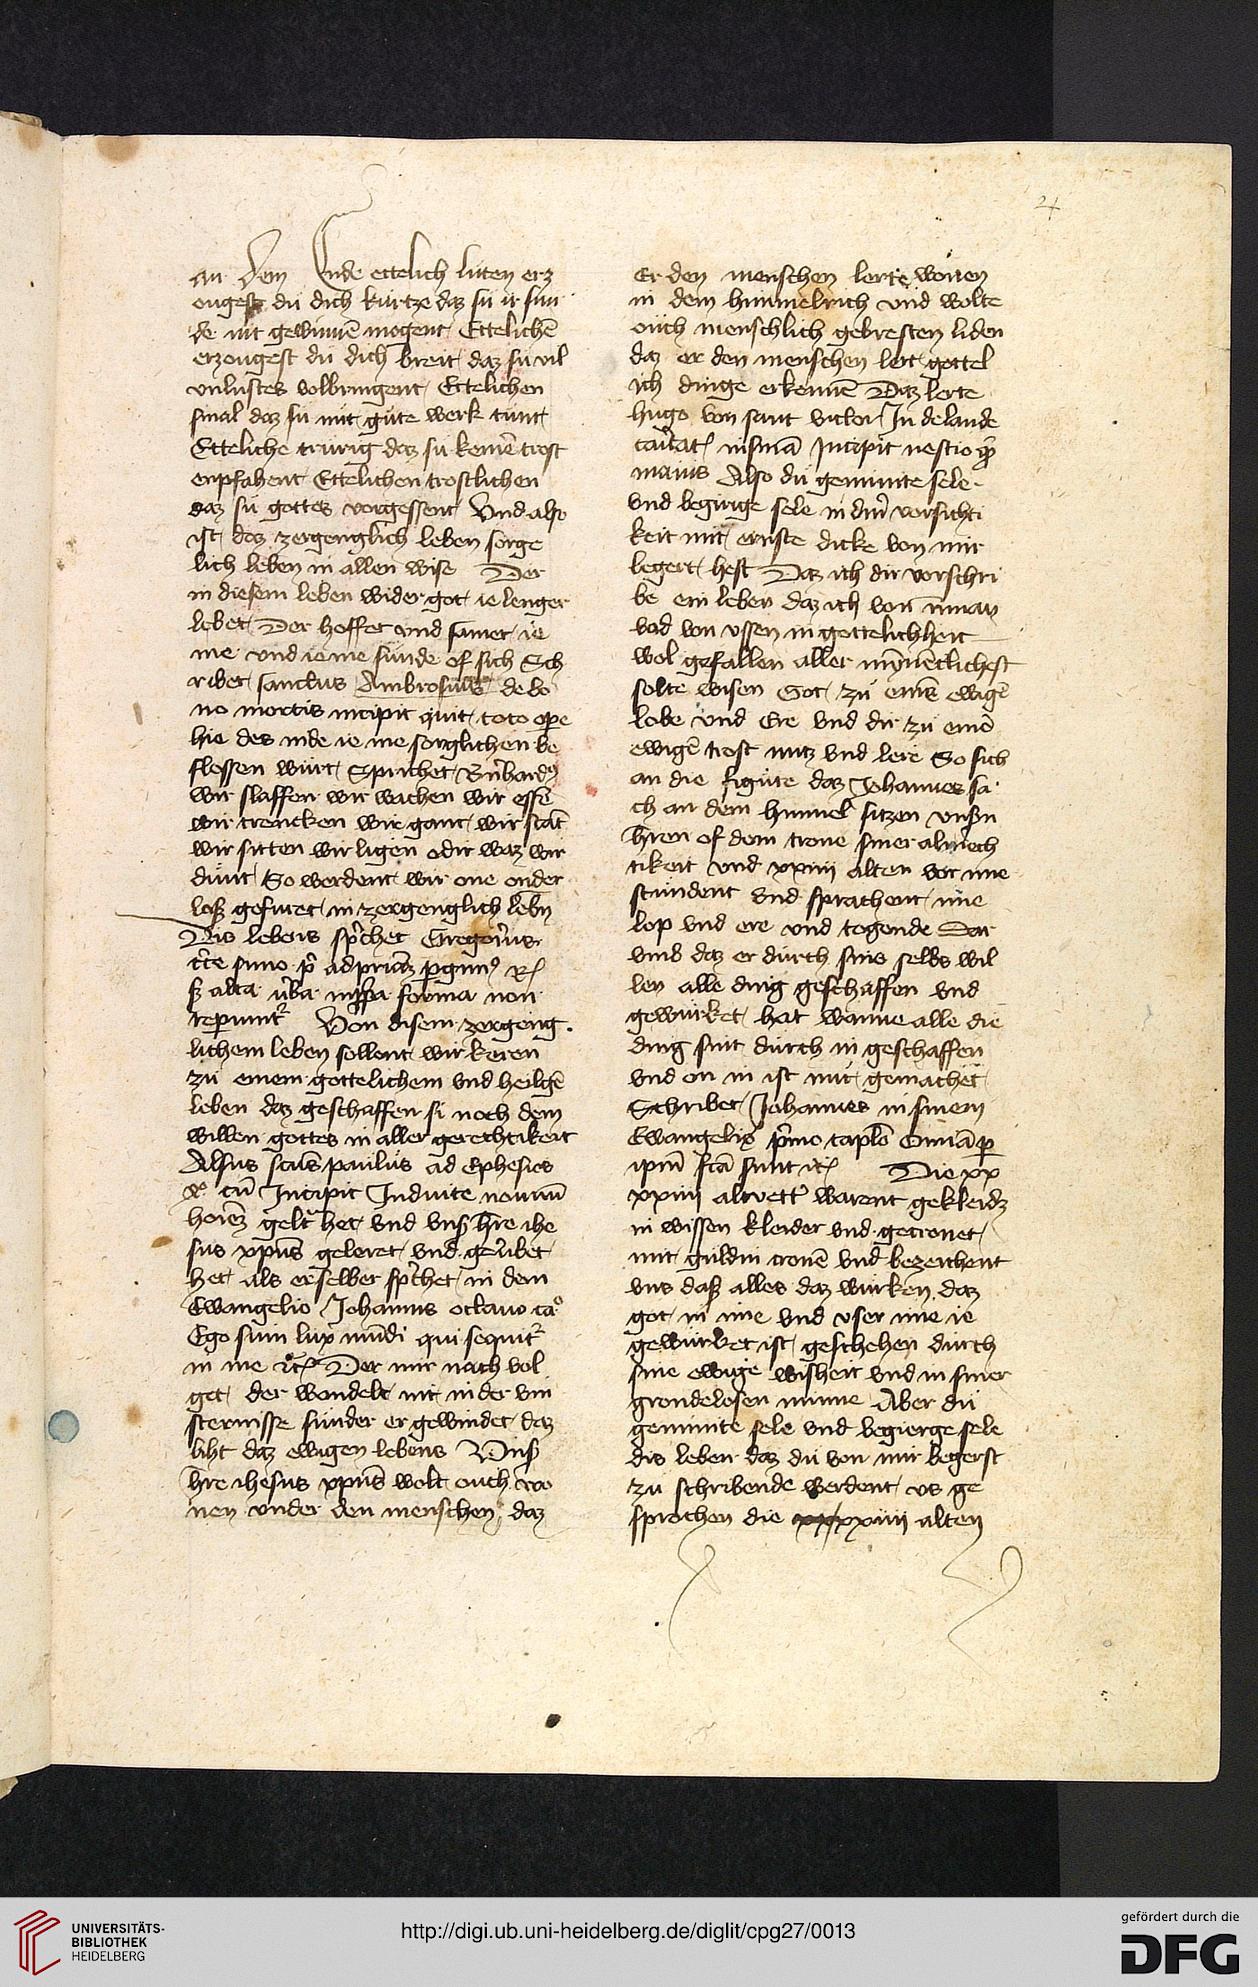 24
an dem Ende ettelich luten erz
ougest du dich kurtze daz sü ir sun
de nit gewinnē mogent Ettelichē
erzougest du dich breit daz sü vil
vnlustes volbringent Ettelichen
smal daz sü nüt güte werk tünt
Etteliche trurig daz sü keinē trost
enpfahent Ettelichen trostlichen
daz sü gottes vorgessent Vnd also
ist daz zergenglich leben sorge
lich leben in allen wise Der
in diesem leben wider got ie lenger
lebet Der hoffet vnd samet ie
me vnd ie me sünde of sich Sch
ribet sanctus Ambrosius de bo
no mortis incipit quit toto ope
hie des inde ie me sorglichen be
flossen würt Sprichet Bn̄hardꝰ
wir slaffen wir wachen wir essē
wir trencken wir gant wir stāt
wir sitten wir ligen odir waz wir
dünt So werdent wir one onder
losz gefuret in zergenglich lebn̄
Dis lebens sp̄chet Gregorius
non
Von disem zergeng
lichem leben sollent wir keren
zü einem gottelichem vnd heilgē
leben daz geschaffen si noch dem
willen gottes in aller gerechtikeit
Alsus sctūs paulus ad Ephesios
cū Incipit Induite nouum
het vnd vnsz hr̄e ihe
sus xpūs geleret vnd
het als er selber sp̄chet in dem
Ewangelio Johannis octauo caº
Ego sum lux mūdi qui sequit᷑
in me Der mir nach vol
get der wandelt nit in der vin
sternisse sunder er gewindet daz
liht daz ewigen lebens Vnsz
hr̄e ihesus xpūs wolt ouch wo
nen vnder den menschen daz
Er den menschen lerte wonen
in dem himmelrich vnd wolte
ouch menschlich gebresten liden
daz er den menschen lert gottel
ich dinge erkennē Daz lerte
hugo von sant victor In delaude
caritatꝭ Incipit nescio
maius Also du geminnte sele
vnd begirige sele in din̄ vorsichti
keit mit ernste dicke von mir
begert hest Daz ich dir vorschri
be ein leben daz ich von innan
vnd von vssen in gottelichheit
wol gefallen aller
solte wisen Got zü einē ewigē
lobe vnd Ere vnd dir zü einē
ewigē trost nutz vnd lere So sich
an die figüre daz Johannes sa
ch an dem himmel sitzen vnsz̄n
hren of dem trone siner almech
tikeit vnd xxiiii alten vor ime
stündent vnd sprachent ime
lop vnd ere vnd togende Dar
vmb daz er durch sins selbs wil
len alle ding geschaffen vnd
gewürket hat wanne alle die
ding sint durch in geschaffen
vnd on in ist nüt gemachet
Schribet Johannes in sinem
Ewangelio p̄mo caplō Oīnia ꝑ
ipm̄ fcā sunt Die xx
xxiiii altvetter warent gekleidz
in wissen kleider vnd getronet
mit guldin cronē vnd bezeichent
vns dasz alles daz würken daz
got in ime vnd vser ime ie
gewürket ist geschehen durch
sine ewige wisheit vnd in siner
grondelosen minne Aber du
geminnte sele vnd begierge sele
dis leben daz du von mir begerst
zü schribende werdent vs ge
sprochen die xxiiii alten
UNIVERSITÄTS-
BIBLIOTHEK
HEIDELBERG
http://digi.ub.uni-heidelberg.de/diglit/cpg27/0013
gefördert durch die
DFG